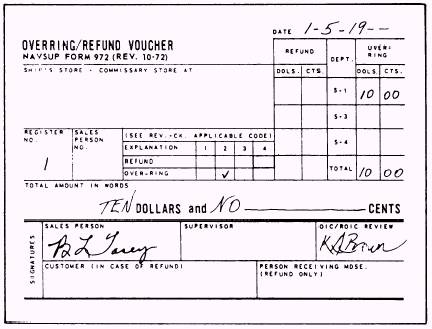 DATE 1-5-19--
OVERRING/REFUND VOUCHER
NAVSUP FORM 972 (REV. 10-72)
SHIP'S STORE - COMMISSARY STORE AT
REFUND DEPT. OVER-RING
DOLS. CTS. DOLS. CTS.
S-1 10 00
S-3
S-4
TOTAL 10 00
REGISTER NO. 1
SALES PERSON NO.
(SEE REV.-CK. APPLICABLE CODE)
EXPLANATION 1 2 3 4
REFUND
OVER-RING ✓
TOTAL AMOUNT IN WORDS
TEN DOLLARS and NO CENTS
SIGNATURES
SALES PERSON SUPERVISOR OIC/ROIC REVIEW
B L
CUSTOMER (IN CASE OF REFUND) PERSON RECEIVING MDSE. (REFUND ONLY)